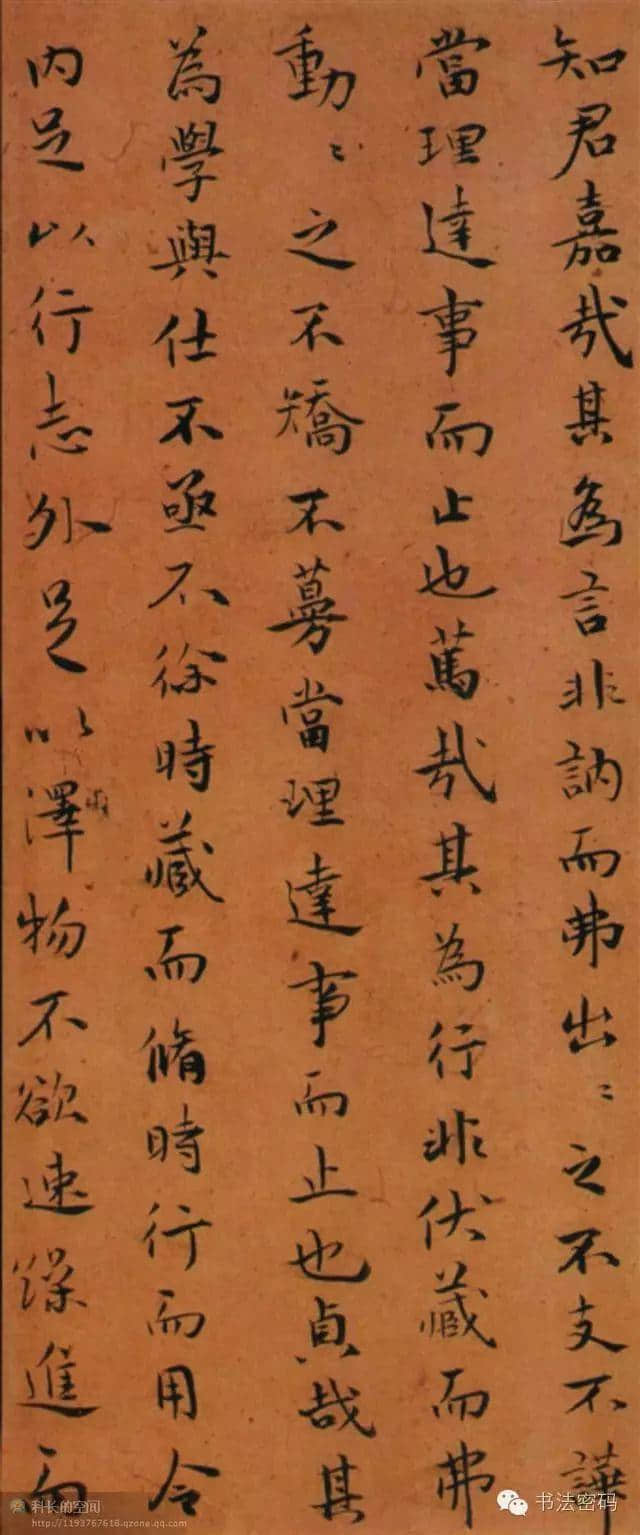 知君嘉哉其為言非訥而弗出〻之不支不譁
當理達事而止也篤哉其為行非伏藏而弗
動〻之不矯不募當理達事而止也貞哉其
為學與仕不亟不徐時藏而脩時行而用令
內足以行志外足以澤物不欲速躁進而
科长的空间
http://1193767618.qzone.qq.com
书法密码